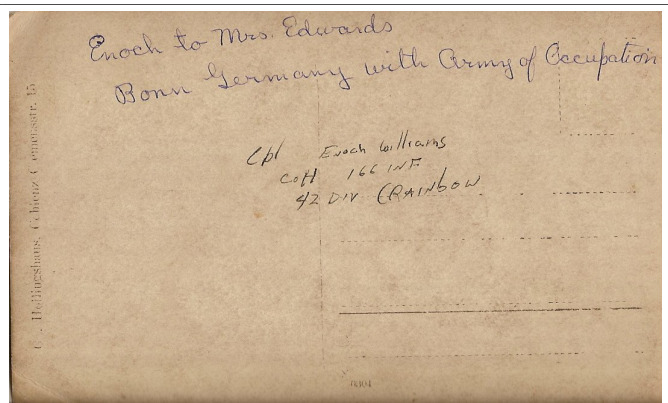 Enoch to Mrs. Edwards
Bonn Germany with Army of Occupation
Cpl Enoch Williams
Co H 166 INF
42 DIV (RAINBOW
Hollingshaus, Coblenz Clemensstr. 15